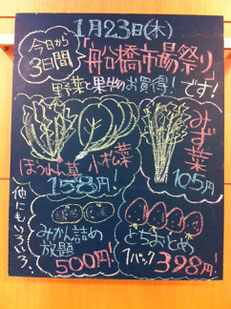 1月23日(木)
今日から
3日間
「船橋市場祭り」
野菜と果物のお買得!です!
ほうれん草 小松菜
158円!
みず菜
105円
他にもいろいろ!
みかん詰め
放題
500円!
とちおとめ
1パック398円!